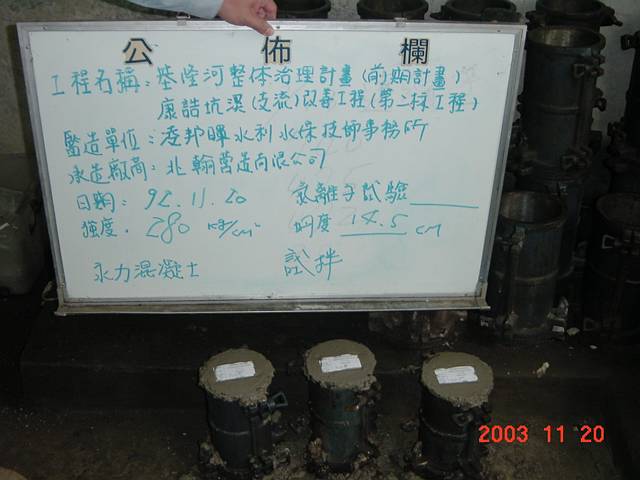 公佈欄
工程名稱：基隆河整体治理計畫（前期計畫）
康誥坑溪（支流）改善工程（第二標工程）
監造單位：凌邦暉水利水保技師事務所
承造廠商：北翰營造有限公司
日期：92.11.20 氯離子試驗
強度：280 kg/cm² 坍度 14.5 cm
水力混凝土 試拌
2003 11 20